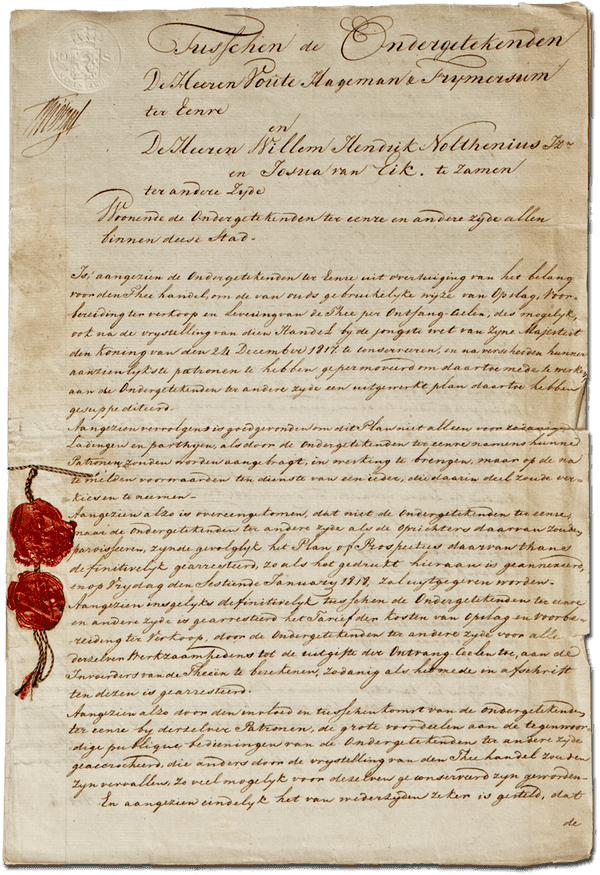 Tusschen de Ondergetekenden
De Heeren Voûte Hageman & Frymersum
ter Eenre
en
De Heeren Willem Hendrik Nolthenius Izn
en Josua van Eik. te zamen
ter andere Zyde
Woonende de Ondergetekenden ter eenre en andere zyde allen
binnen deese Stad.
Is' aangezien de Ondergetekenden ter Eenre uit overtuiging van het belang
voor den Thee handel, om de van ouds gebruikelyke wyze van Opslag, Voor-
bereiding ter verkoop en Levering van de Thee per Ontfang-Ceelen, des mogelyk,
ook na de vrystelling van dien Handel by de jongste wet van Zyne Majesteit
den Koning van den 24 December 1817. te conserveren, en na verscheiden hunner
aanzienlykste patronen te hebben gepermoveerd om daartoe mede te werken
aan de Ondergetekenden ter andere zyde een uitgewerkt plan daartoe hebben
gesuppediteerd.
Aangezien vervolgens is goedgevonden om dit Plan niet alleen voor zodanige
Ladingen en parthyen, als door de Ondergetekenden ter eenre namens hunne
Patronen, zouden worden aangebragt, in werking te brengen, maar op de na
te melden voorwaarden ten dienste van een ieder, die daaraan deel zoude ver-
kiesen te neemen-
Aangezien alzo is overeengekomen, dat niet de Ondergetekenden ter eenre,
maar de Ondergetekenden ter andere zyde als de Oprichters daarvan zouden
paroisseren, zynde gevolglyk het Plan of Prospectus daarvan thans
definitivelyk gearresteerd, zo als het gedrukt hieraan is geannexeerd,
en op Vrydag den Sestiende January 1818, zal uytgegeven worden-
Aangezien insgelyks definitivelyk tusschen de Ondergetekenden ter eenre
en andere zyde is gearresteerd het Tarief der kosten van Opslag en Voorbe-
reiding ter Verkoop, door de Ondergetekenden ter andere zyde voor alle
derzelver Werkzaamheden tot de uitgifte der Ontvang-Ceelen toe, aan de
Invoerders van de Theën te berekenen, zodanig als hetmede in afschrift
ten dezen is gearresteerd.
Aangezien alzo door den invloed en tusschenkomst van de Ondergetekenden,
ter eenre by derzelver Patronen, de grote voordelen aan de tegenwoor-
dige publique bedieningen van de Ondergetekenden ter andere zyde
geaccrocheerd, die anders door de vrystelling van den Thee handel zouden
zyn vervallen, zo veel mogelyk voor dezelven geconserveerd zyn geworden-
En aangezien eindelyk het van wederzyden zeker is gesteld, dat
de